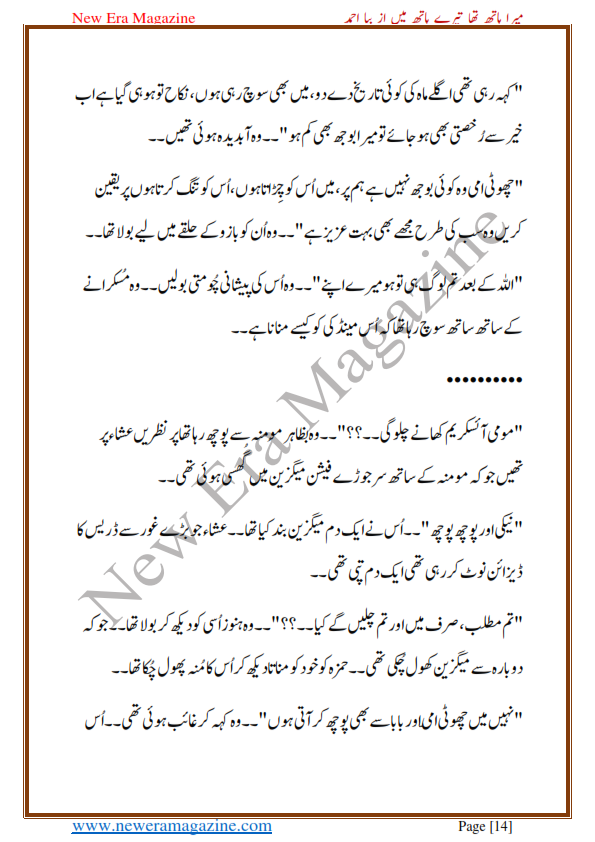 New Era Magazine میرا ہاتھ تھا تیرے ہاتھ میں از ببا احمد
"کہہ رہی تھی اگلے ماہ کی کوئی تاریخ دے دو، میں بھی سوچ رہی ہوں، نکاح تو ہو ہی گیا ہے اب
خیر سے رُخصتی بھی ہو جائے تو میرا بوجھ بھی کم ہو"۔۔وہ آبدیدہ ہوئی تھیں۔۔
"چھوٹی امی وہ کوئی بوجھ نہیں ہے ہم پر، میں اُس کو چِڑاتا ہوں، اُس کو تنگ کرتا ہوں پر یقین
کریں وہ سب کی طرح مجھے بھی بہت عزیز ہے"۔۔وہ اُن کو بازو کے حلقے میں لیے بولا تھا۔۔
"اللہ کے بعد تم لوگ ہی تو ہو میرے اپنے"۔۔وہ اُس کی پیشانی چُومتی بولیں۔۔وہ مُسکرانے
کے ساتھ ساتھ سوچ رہا تھا کہ اُس مینڈکی کو کیسے منانا ہے۔۔
••••••••••
"مومی آئسکریم کھانے چلو گی۔۔؟؟"۔۔وہ بظاہر مومنہ سے پوچھ رہا تھا پر نظریں عشاء پر
تھیں جو کہ مومنہ کے ساتھ سر جوڑے فیشن میگزین میں گُھسی ہوئی تھی۔۔
"نیکی اور پوچھ پوچھ"۔۔اُس نے ایک دم میگزین بند کیا تھا۔۔عشاء جو بڑے غور سے ڈریس کا
ڈیزائن نوٹ کر رہی تھی ایک دم تپی تھی۔۔
"تم مطلب، صرف میں اور تم چلیں گے کیا۔۔؟؟"۔۔وہ ہنوز اُسی کو دیکھ کر بولا تھا۔۔جو کہ
دوبارہ سے میگزین کھول چُکی تھی۔۔حمزہ کو خود کو مناتا دیکھ کر اُس کا مُنہ پھول چُکا تھا۔۔
"نہیں میں چھوٹی امی اور بابا سے بھی پوچھ کر آتی ہوں"۔۔وہ کہہ کر غائب ہوئی تھی۔۔اُس
New Era Magazine
www.neweramagazine.com Page [14]